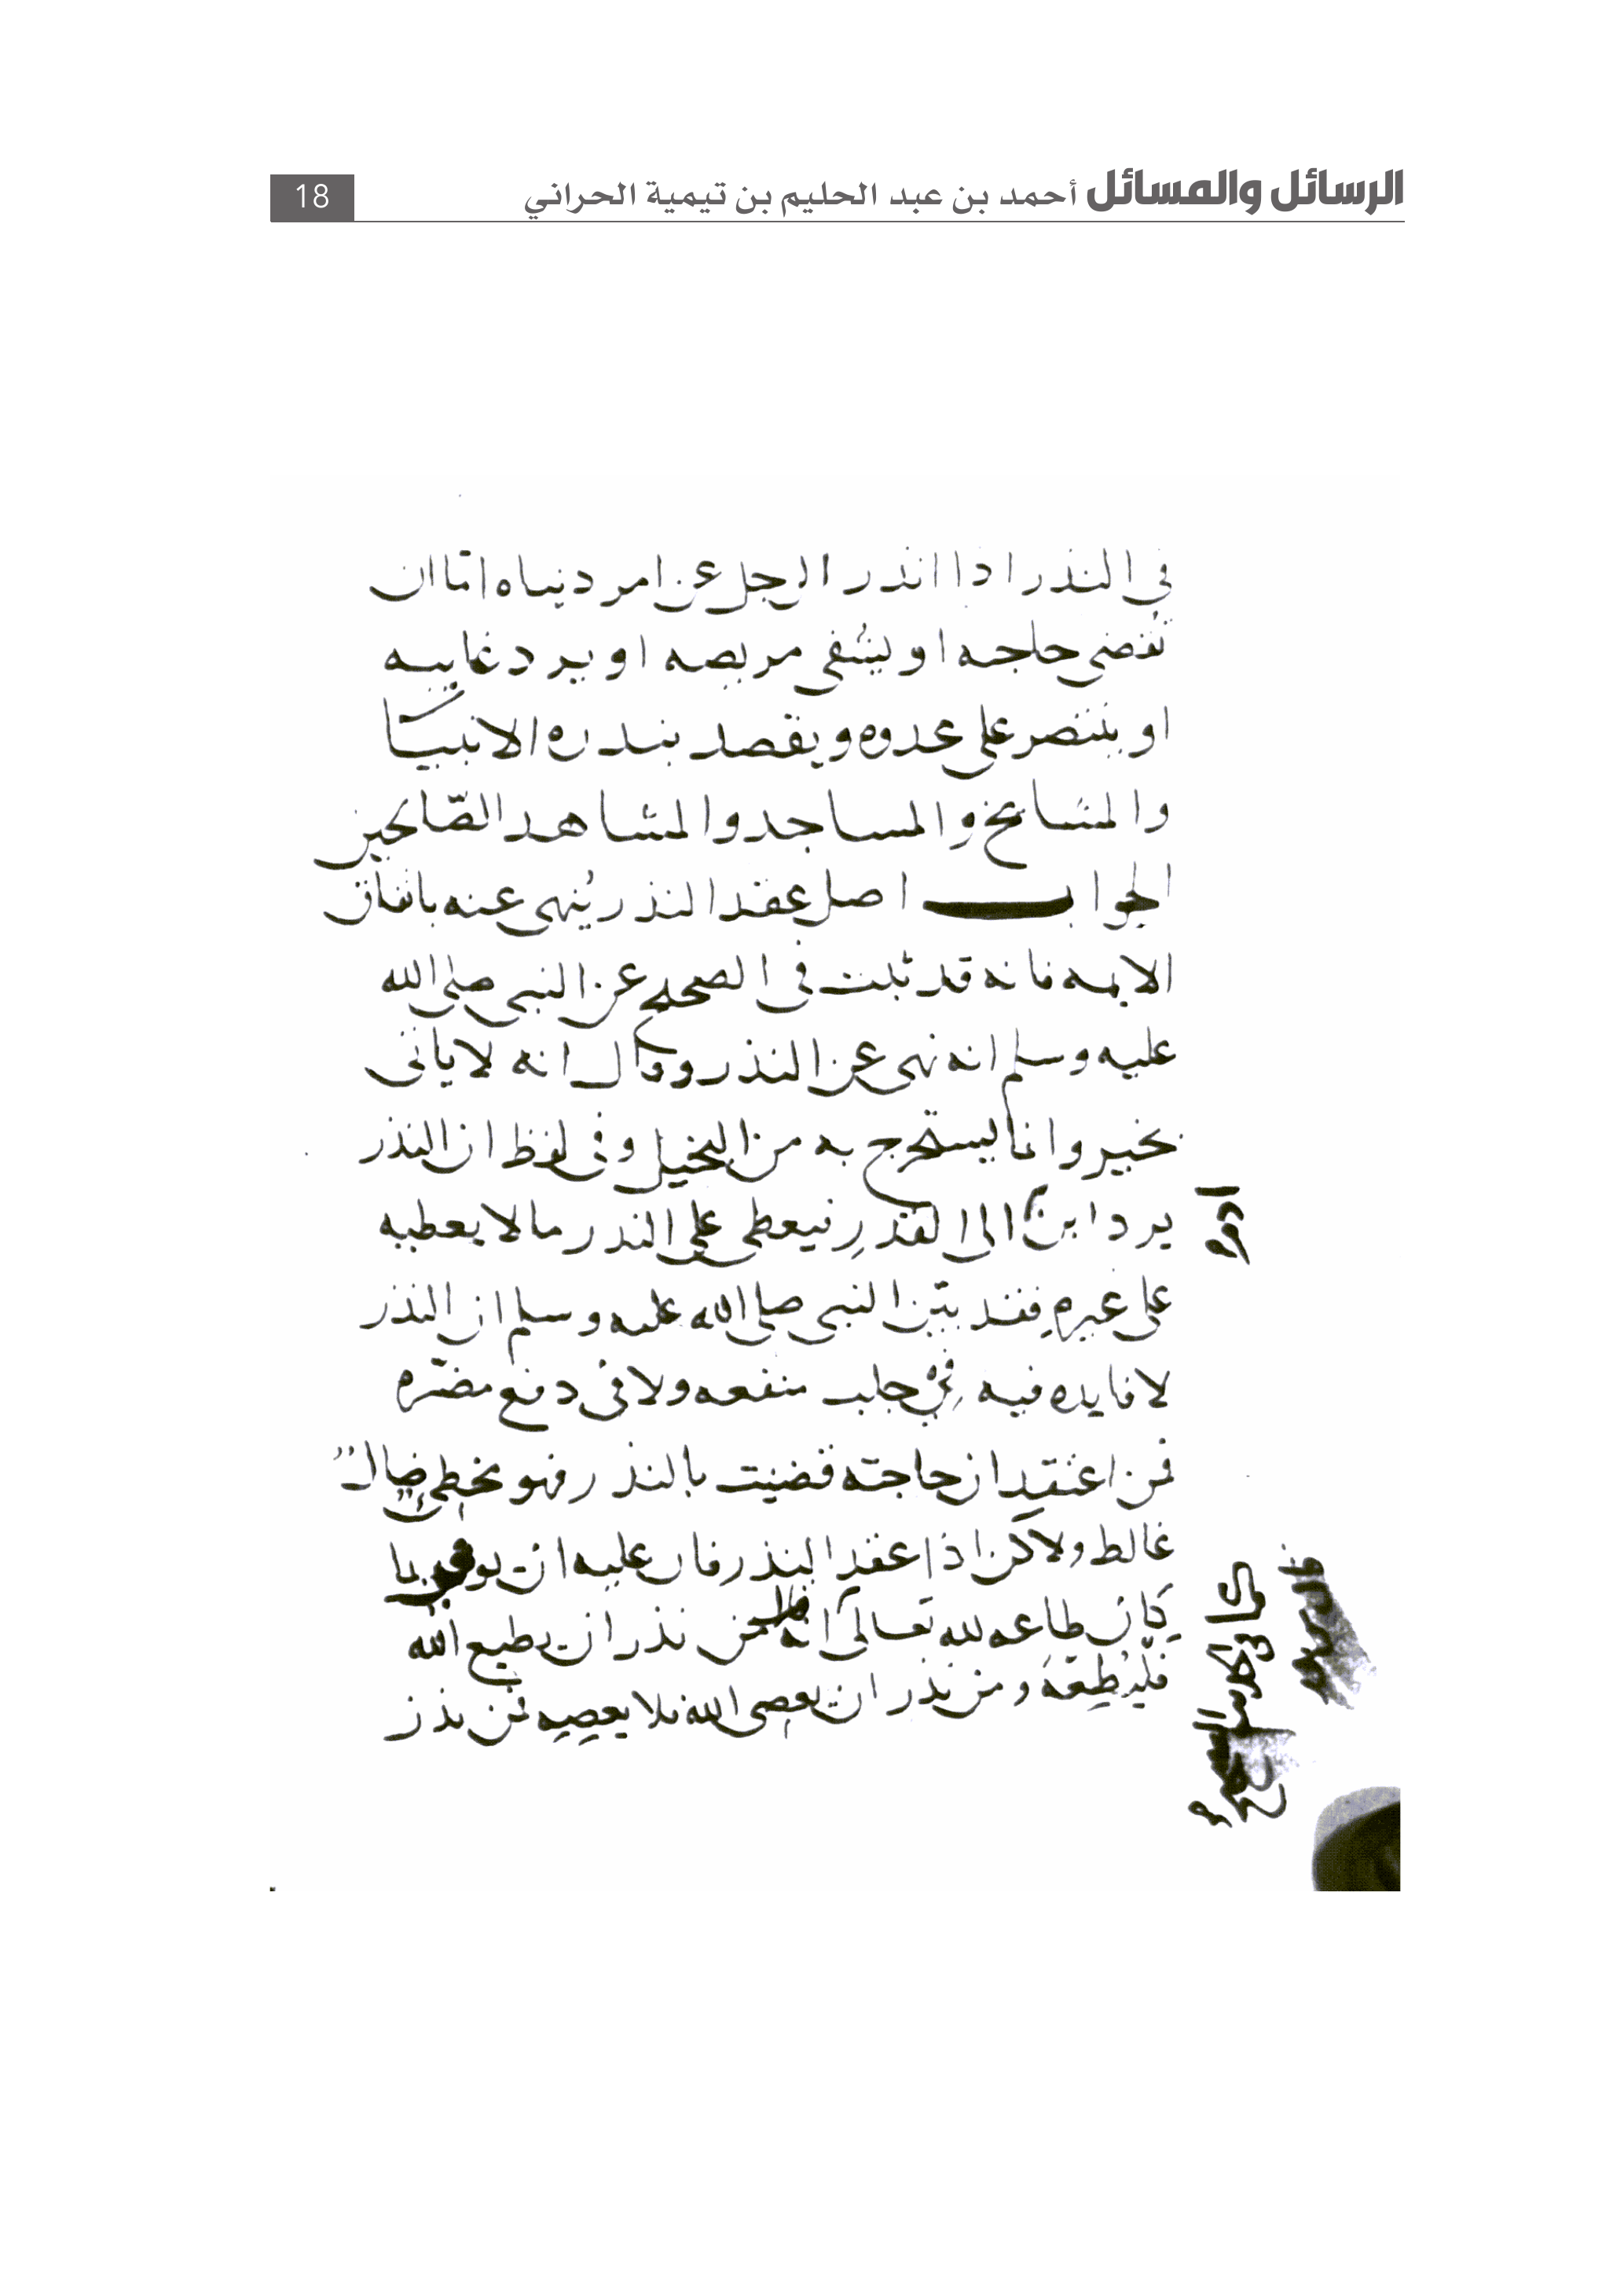 الرسائل والمسائل أحمد بن عبد الحليم بن تيمية الحراني 18
في النذر اذا انذر الرجل عن امر دنياه امّا ان
تقضى حاجه او يشفى مريضه او يرد غايبه
او ينتصر على عدوه ويقصد بنذره الانبيا
والمشايخ والمساجد والمشاهد الصّالحين
الجواب اصل عقد النذر يُنهى عنه باتفاق
الايمه فانه قد ثبت في الصحيح عن النبي صلى الله
عليه وسلم انه نهى عن النذر وقال انه لا ياتى
بخير وانما يستخرج به من البخيل وفى لفظ ان النذر
يرد ابن الى القدرِ فيعطى على النذر ما لا يعطيه
ادم
على غيرهِ فقد بيّن النبي صلى الله عليه وسلم ان النذر
لا فايده فيه في جلب منفعه ولا فى دفع مضرّه
فمن اعتقد ان حاجته قضيت بالنذر فهو مخطى ضالٌ
غالط ولاكن اذا عقد النذر فان عليه ان يوفى بما
كان طاعه لله تعالى من نذر ان يطيع الله
كما في الصحيح
فليُطِعْهُ ومن نذر ان يعصى الله فلا يعصيه فمن نذر